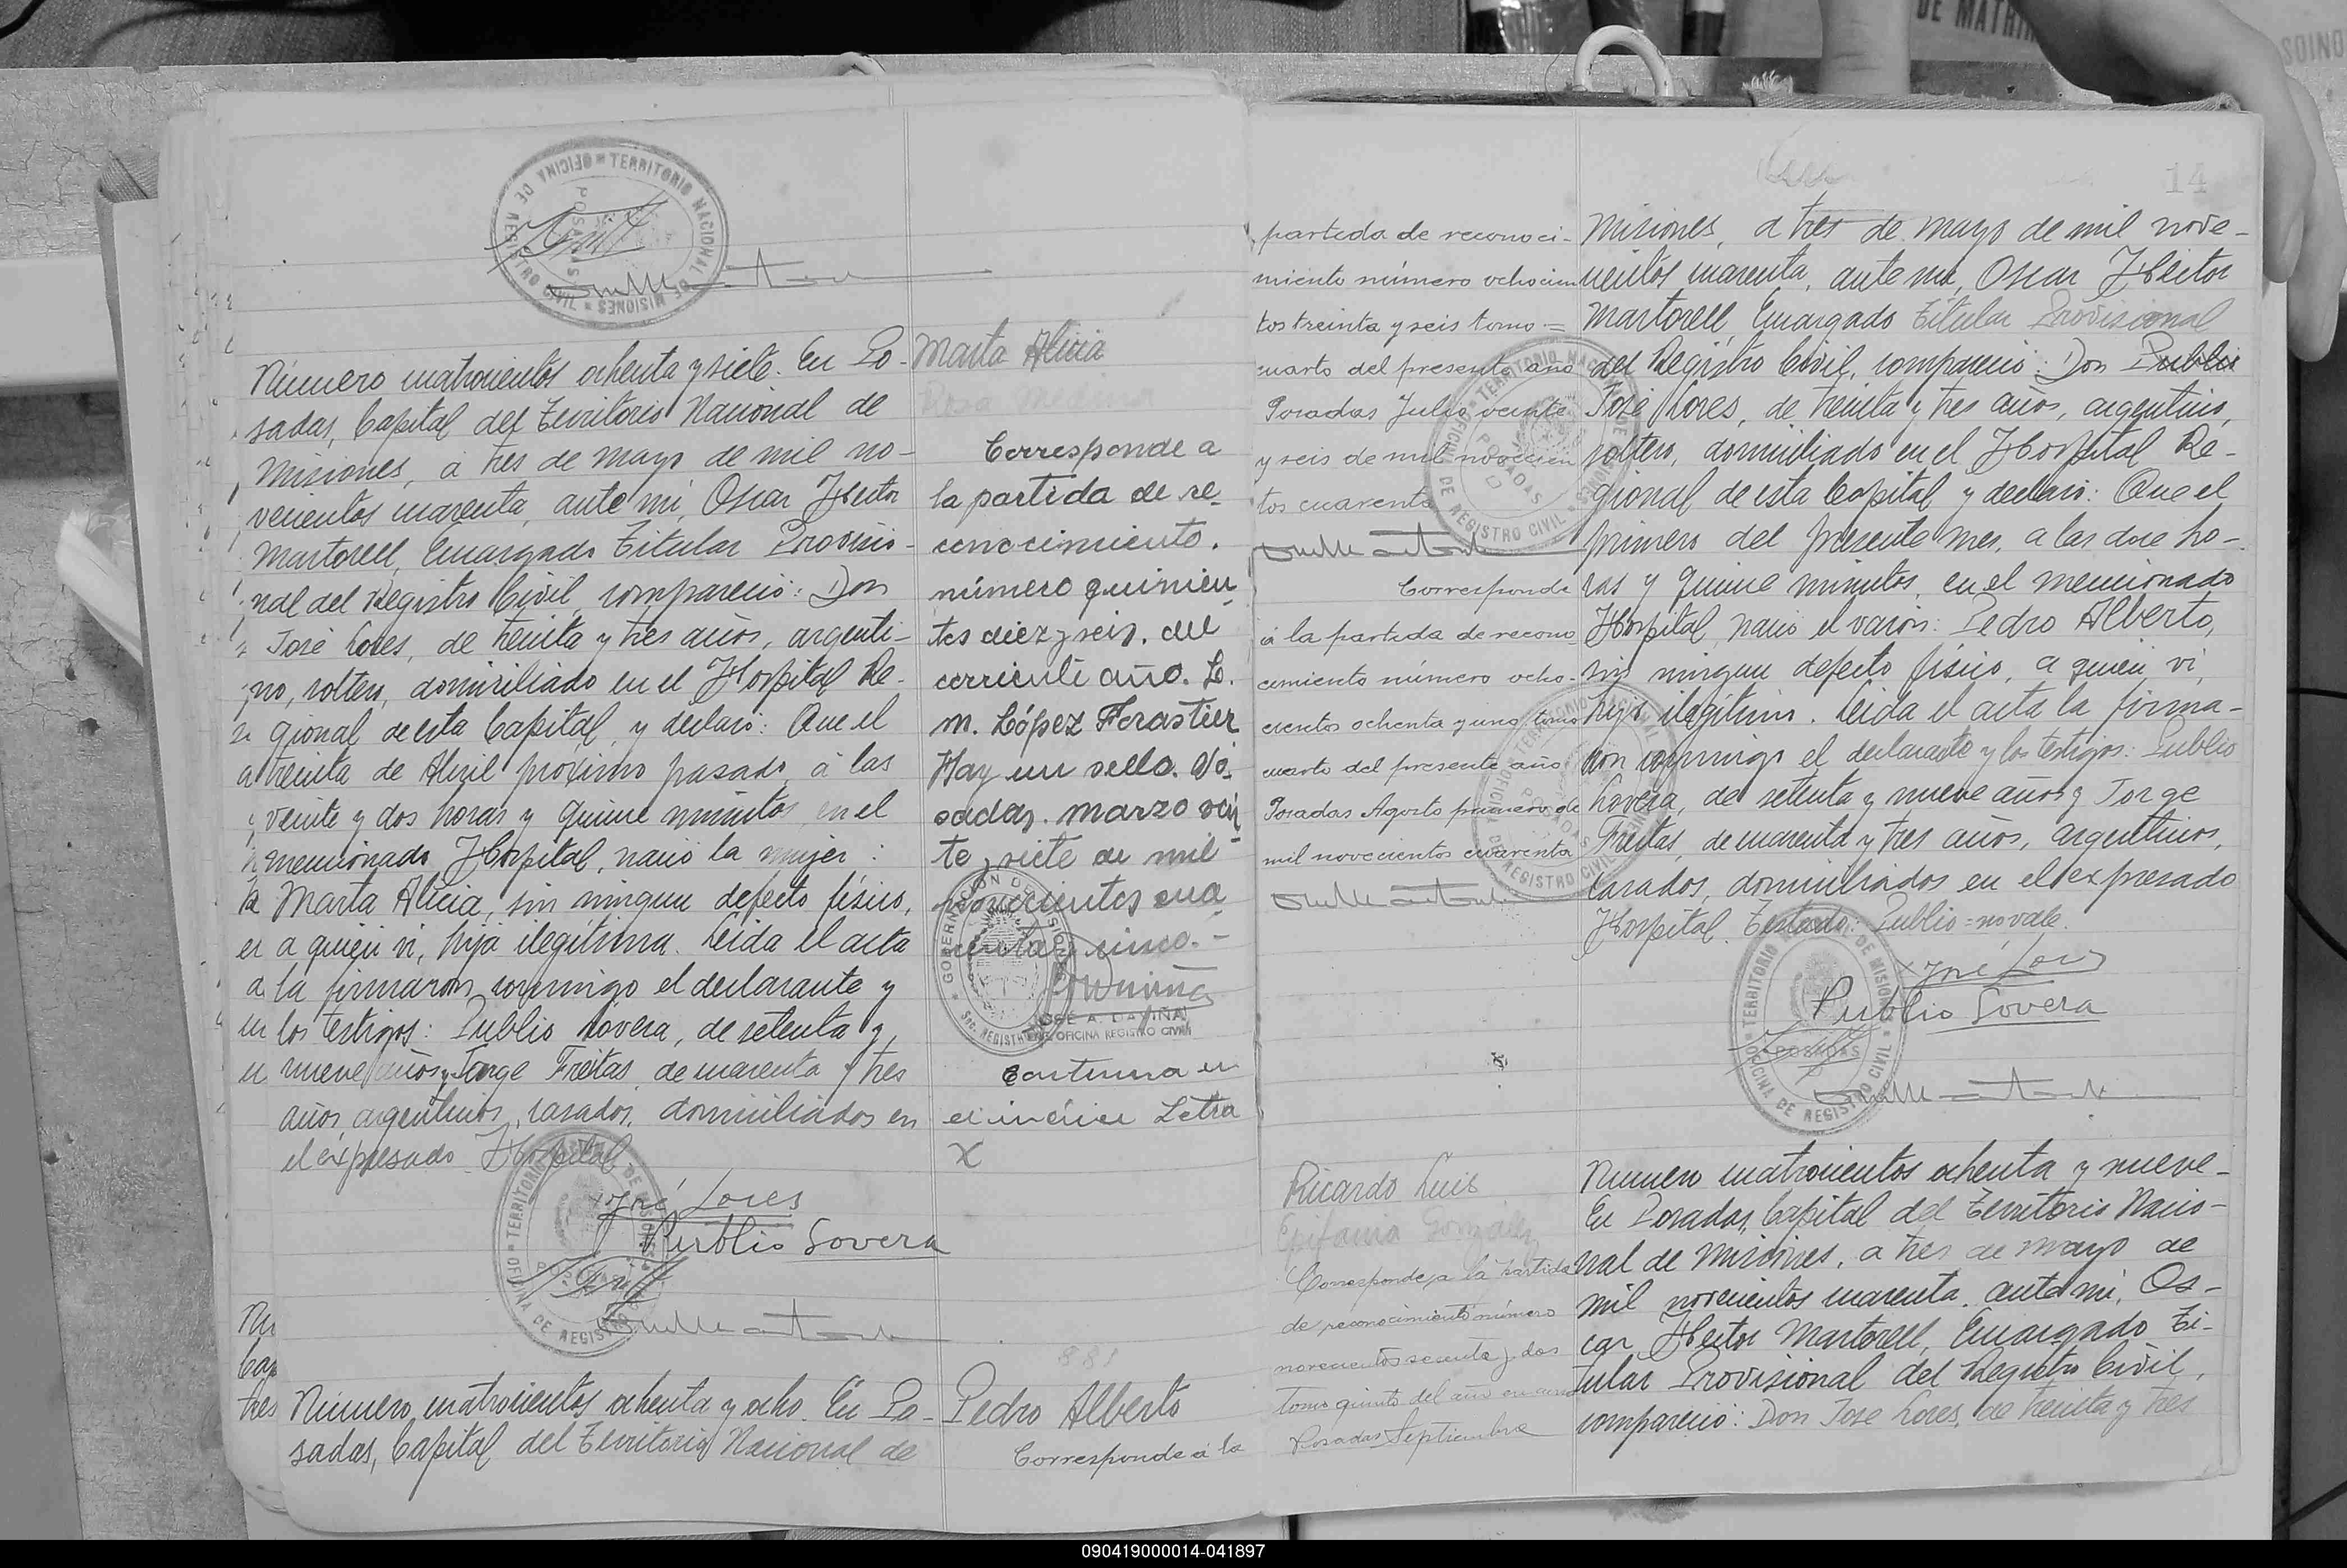 OFICINA DE REGISTRO CIVIL
TERRITORIO NACIONAL DE MISIONES
POSADAS
Número cuatrocientos ochenta y siete. En Po-
sadas, Capital del Territorio Nacional de
Misiones, a tres de mayo de mil no-
vecientos cuarenta, ante mí, Oscar Hector
Martorell, Encargado Titular Provisio-
nal del Registro Civil, compareció: Don
José Lores, de treinta y tres años, argenti-
no, soltero, domiciliado en el Hospital Re-
gional de esta Capital, y declaró: Que el
treinta de Abril próximo pasado, a las
veinte y dos horas y quince minutos, en el
mencionado Hospital, nació la mujer:
Marta Alicia, sin ningun defecto físico,
a quien vi, hija ilegítima. Leida el acta
la firmaron conmigo el declarante y
los testigos: Publio Lovera, de setenta y
nueve años y Jorge Freitas, de cuarenta y tres
años, argentinos, casados, domiciliados en
el expresado Hospital
José Lores
Publio Lovera
Marta Alicia
Rosa Medina
Corresponde a
la partida de re-
conocimiento.
número quinien
tos diez y seis. del
corriente año. L.
M. López Forastier
Hay un sello. Po-
sadas. marzo vein
te y siete de mil
novecientos cua
renta y cinco. -
JOSE A. LAVIÑA
ENC. OFICINA REGISTRO CIVIL
Continua en
el indice Letra
X
Nu
Cap
tres
881
Número cuatrocientos ochenta y ocho. En Po-
sadas, Capital del Territorio Nacional de
Pedro Alberto
Corresponde á la
14
partida de reconoci-
miento número ochocien
tos treinta y seis tomo =
cuarto del presente año
Posadas Julio veinte
y seis de mil novecien
tos cuarenta
Corresponde
á la partida de recono
cimiento número ocho-
cientos ochenta y uno tomo
cuarto del presente año
Posadas Agosto primero de
mil novecientos cuarenta
Misiones, a tres de mayo de mil nove-
cientos cuarenta, ante mí, Oscar Héctor
Martorell Encargado Titular Provisional
del Registro Civil, compareció: Don Publio
José Lores, de treinta y tres años, argentino,
soltero, domiciliado en el Hospital Re-
gional de esta Capital y declaró: Que el
primero del presente mes, a las doce ho-
ras y quince minutos, en el mencionado
Hospital, nació el varón: Pedro Alberto,
sin ningun defecto físico, a quien vi,
hijo ilegítimo. Leida el acta la firma-
ron conmigo el declarante y los testigos: Publio
Lovera, de setenta y nueve años y Jorge
Freitas, de cuarenta y tres años, argentinos,
casados, domiciliados en el expresado
Hospital. Testado: Publio = no vale.
José Lores
Publio Lovera
Ricardo Luis
Epifania González
Corresponde a la partida
de reconocimiento número
novecientos sesenta y dos
tomo quinto del año en curso
Posadas Septiembre
Número cuatrocientos ochenta y nueve-
En Posadas, Capital del Territorio Nacio-
nal de Misiones, a tres de mayo de
mil novecientos cuarenta, ante mí, Os-
car Héctor Martorell, Encargado Ti-
tular Provisional del Registro Civil,
compareció: Don José Lores, de treinta y tres
090419000014-041897